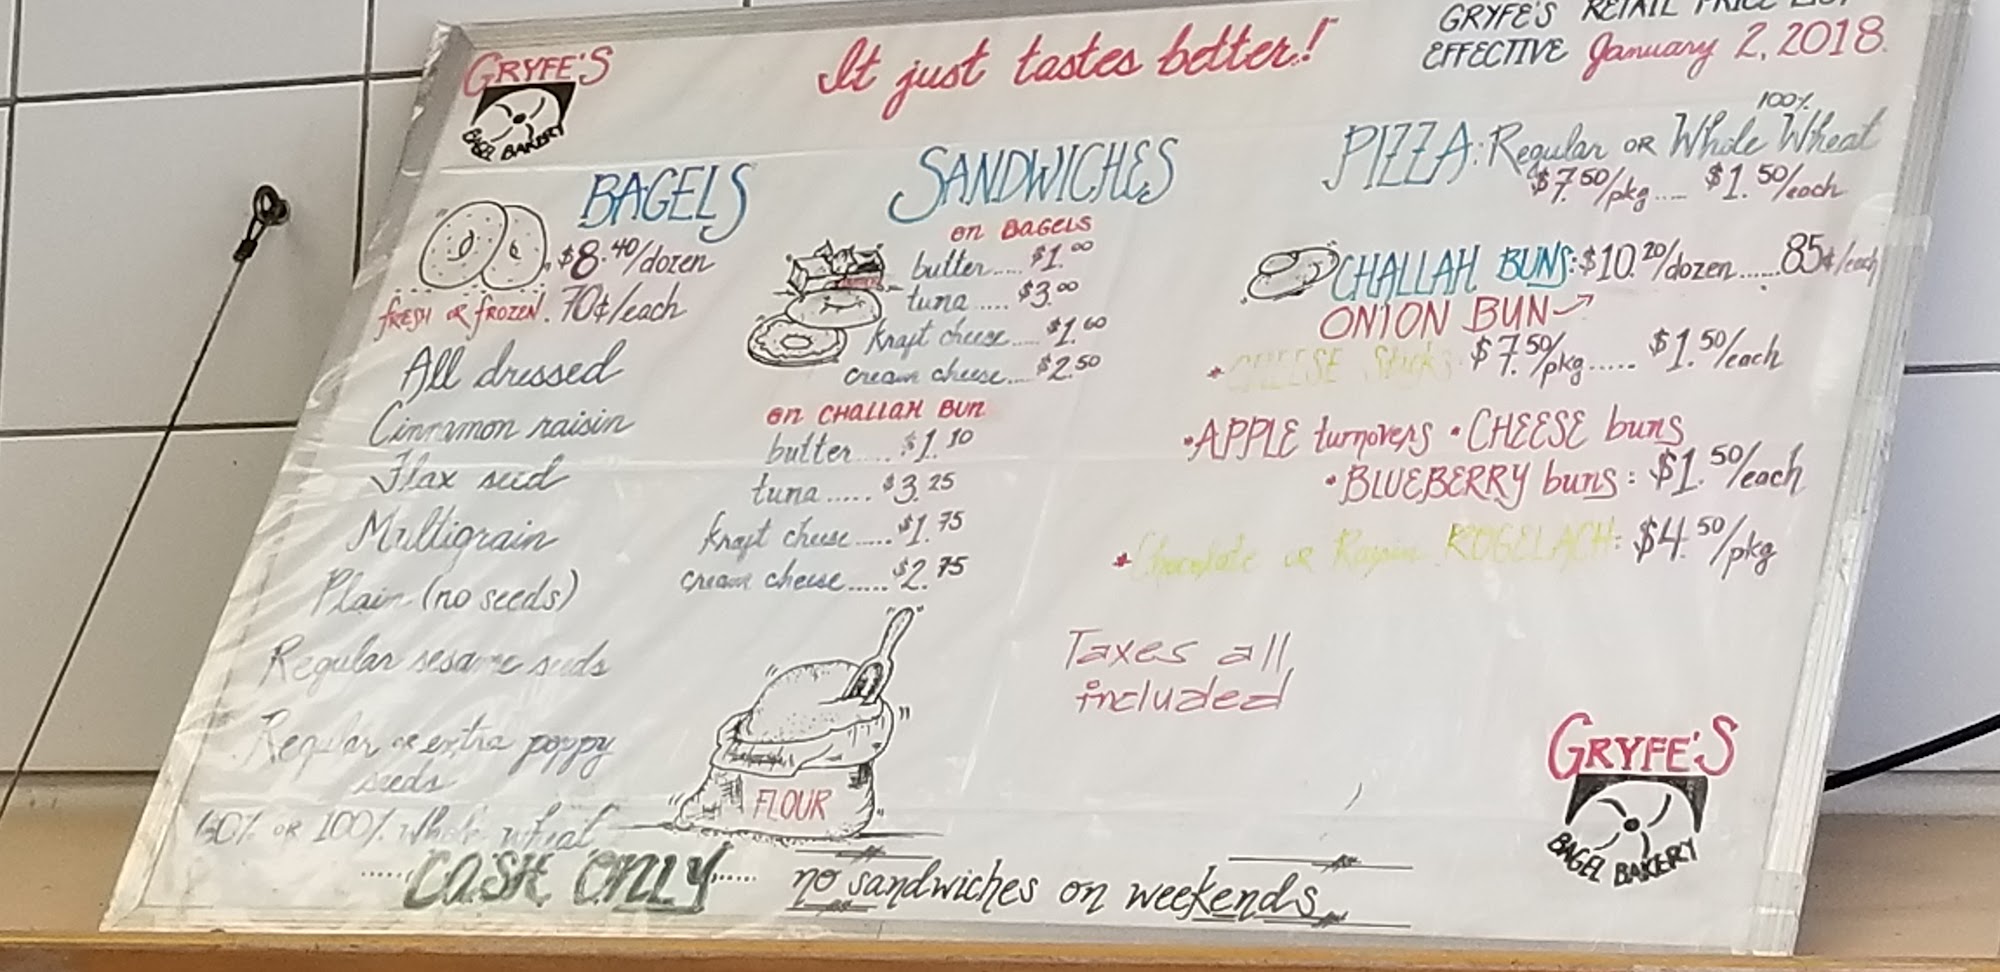 GRYFE'S
BAGEL BAKERY
It just tastes better!
GRYFE'S RETAIL PRICE LIST
EFFECTIVE January 2, 2018
BAGELS
$8.40/dozen
fresh or frozen. 70¢/each
All dressed
Cinnamon raisin
Flax seed
Multigrain
Plain (no seeds)
Regular sesame seeds
Regular or extra poppy
seeds
60% OR 100% Whole wheat
SANDWICHES
on BAGELS
butter..... $1.00
tuna ..... $3.00
Kraft cheese..... $1.60
cream cheese.... $2.50
on CHALLAH BUN
butter.... $1.10
tuna ...... $3.25
Kraft cheese..... $1.75
cream cheese..... $2.75
FLOUR
PIZZA: Regular OR Whole Wheat
100%
$7.50/pkg.... $1.50/each
CHALLAH BUNS: $10.20/dozen..... 85¢/each
ONION BUN
* CHEESE Sticks: $7.50/pkg..... $1.50/each
• APPLE turnovers • CHEESE buns
• BLUEBERRY buns: $1.50/each
* Chocolate or Raisin ROGELACH: $4.50/pkg
Taxes all
included
GRYFE'S
BAGEL BAKERY
.....CASH ONLY..... no sandwiches on weekends